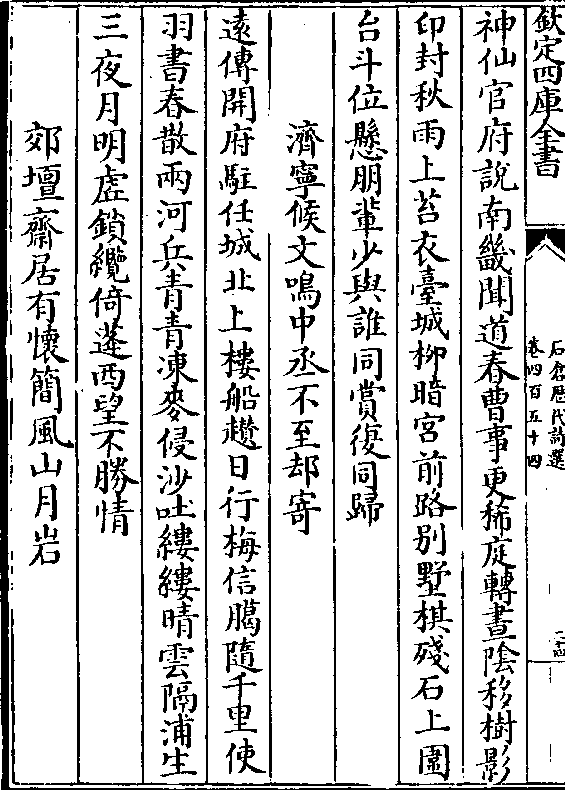 欽定四庫全書
石倉歷代詩選
卷四百五十四
二十四
神仙官府說南畿聞道春曹事更稀庭轉晝隂移樹影
印封秋雨上苔衣臺城柳暗宮前路别墅棋殘石上圍
台斗位懸朋輩少與誰同賞復同歸
濟寧候文鳴中丞不至却寄
遠傳開府駐任城北上樓船趲日行梅信臈隨千里使
羽書春散兩河兵青青凍麥侵沙吐縷縷晴雲隔浦生
三夜月明虚鎖纜倚蓬西望不勝情
郊壇齋居有懷簡風山月岩